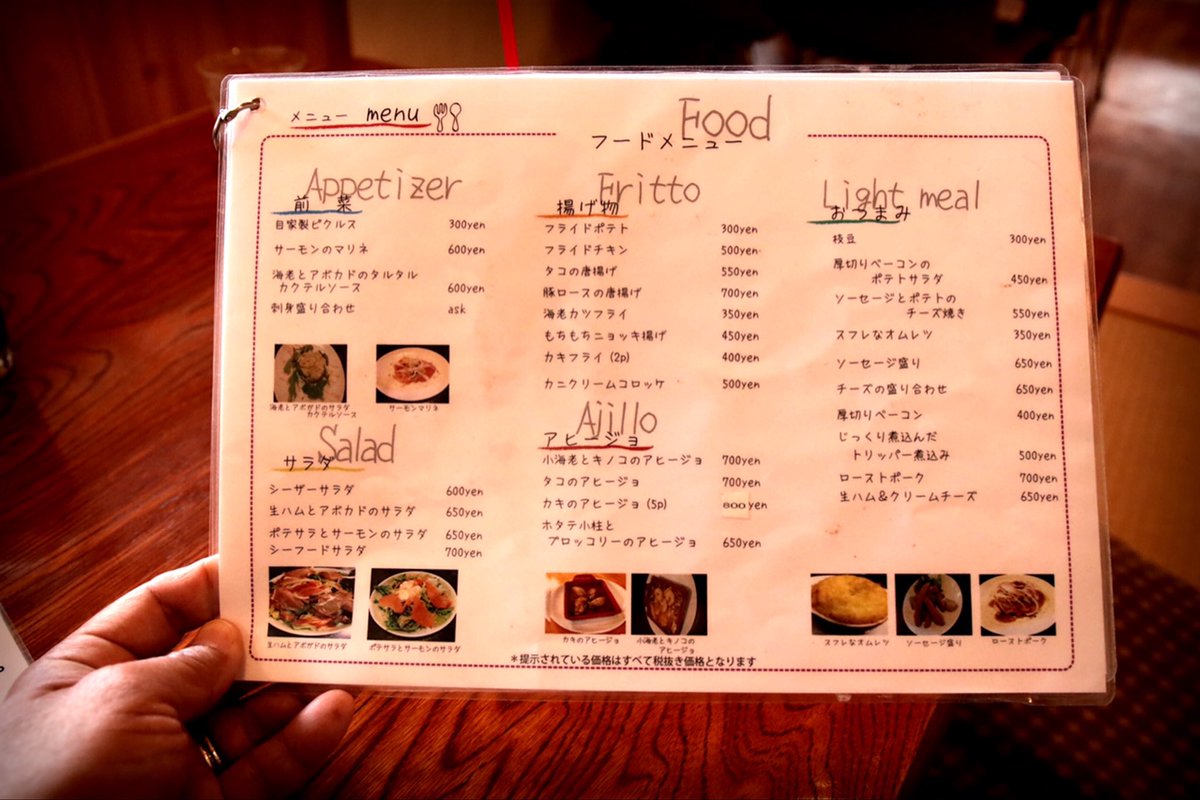 メニュー menu
Food
フードメニュー
Appetizer
前菜
自家製ピクルス 300yen
サーモンのマリネ 600yen
海老とアボカドのタルタル
カクテルソース 600yen
刺身盛り合わせ ask
海老とアボガドのサラダ
カクテルソース
サーモンマリネ
Salad
サラダ
シーザーサラダ 600yen
生ハムとアボカドのサラダ 650yen
ポテサラとサーモンのサラダ 650yen
シーフードサラダ 700yen
生ハムとアボガドのサラダ
ポテサラとサーモンのサラダ
Fritto
揚げ物
フライドポテト 300yen
フライドチキン 500yen
タコの唐揚げ 550yen
豚ロースの唐揚げ 700yen
海老カツフライ 350yen
もちもちニョッキ揚げ 450yen
カキフライ (2p) 400yen
カニクリームコロッケ 500yen
Ajillo
アヒージョ
小海老とキノコのアヒージョ 700yen
タコのアヒージョ 700yen
カキのアヒージョ (5p) 800yen
ホタテ小柱と
ブロッコリーのアヒージョ 650yen
カキのアヒージョ
小海老とキノコの
アヒージョ
Light meal
おつまみ
枝豆 300yen
厚切りベーコンの
ポテトサラダ 450yen
ソーセージとポテトの
チーズ焼き 550yen
スフレなオムレツ 350yen
ソーセージ盛り 650yen
チーズの盛り合わせ 650yen
厚切りベーコン 400yen
じっくり煮込んだ
トリッパー煮込み 500yen
ローストポーク 700yen
生ハム&クリームチーズ 650yen
スフレなオムレツ
ソーセージ盛り
ローストポーク
*提示されている価格はすべて税抜き価格となります